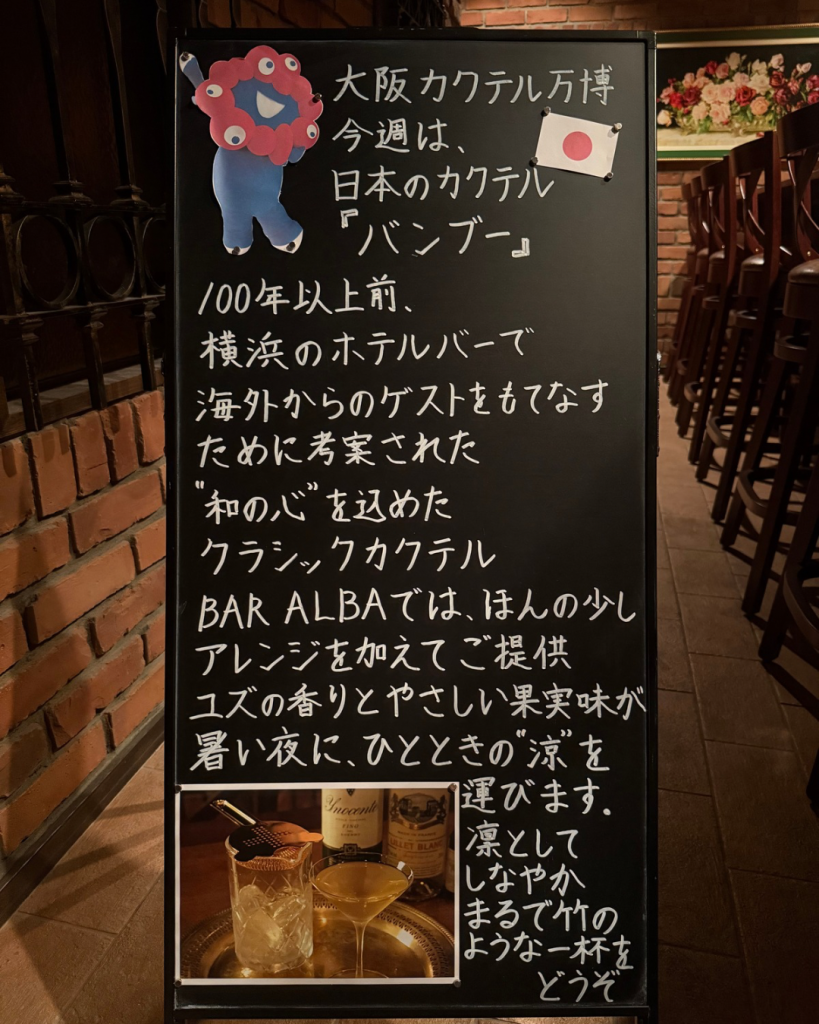 大阪カクテル万博
今週は、
日本のカクテル
『バンブー』
100年以上前、
横浜のホテルバーで
海外からのゲストをもてなす
ために考案された
"和の心"を込めた
クラシックカクテル
BAR ALBAでは、ほんの少し
アレンジを加えてご提供
ユズの香りとやさしい果実味が
暑い夜に、ひとときの"涼"を
運びます.
凛として
しなやか
まるで竹の
ような一杯を
どうぞ
Ynocente
FINO
LLET BLANC